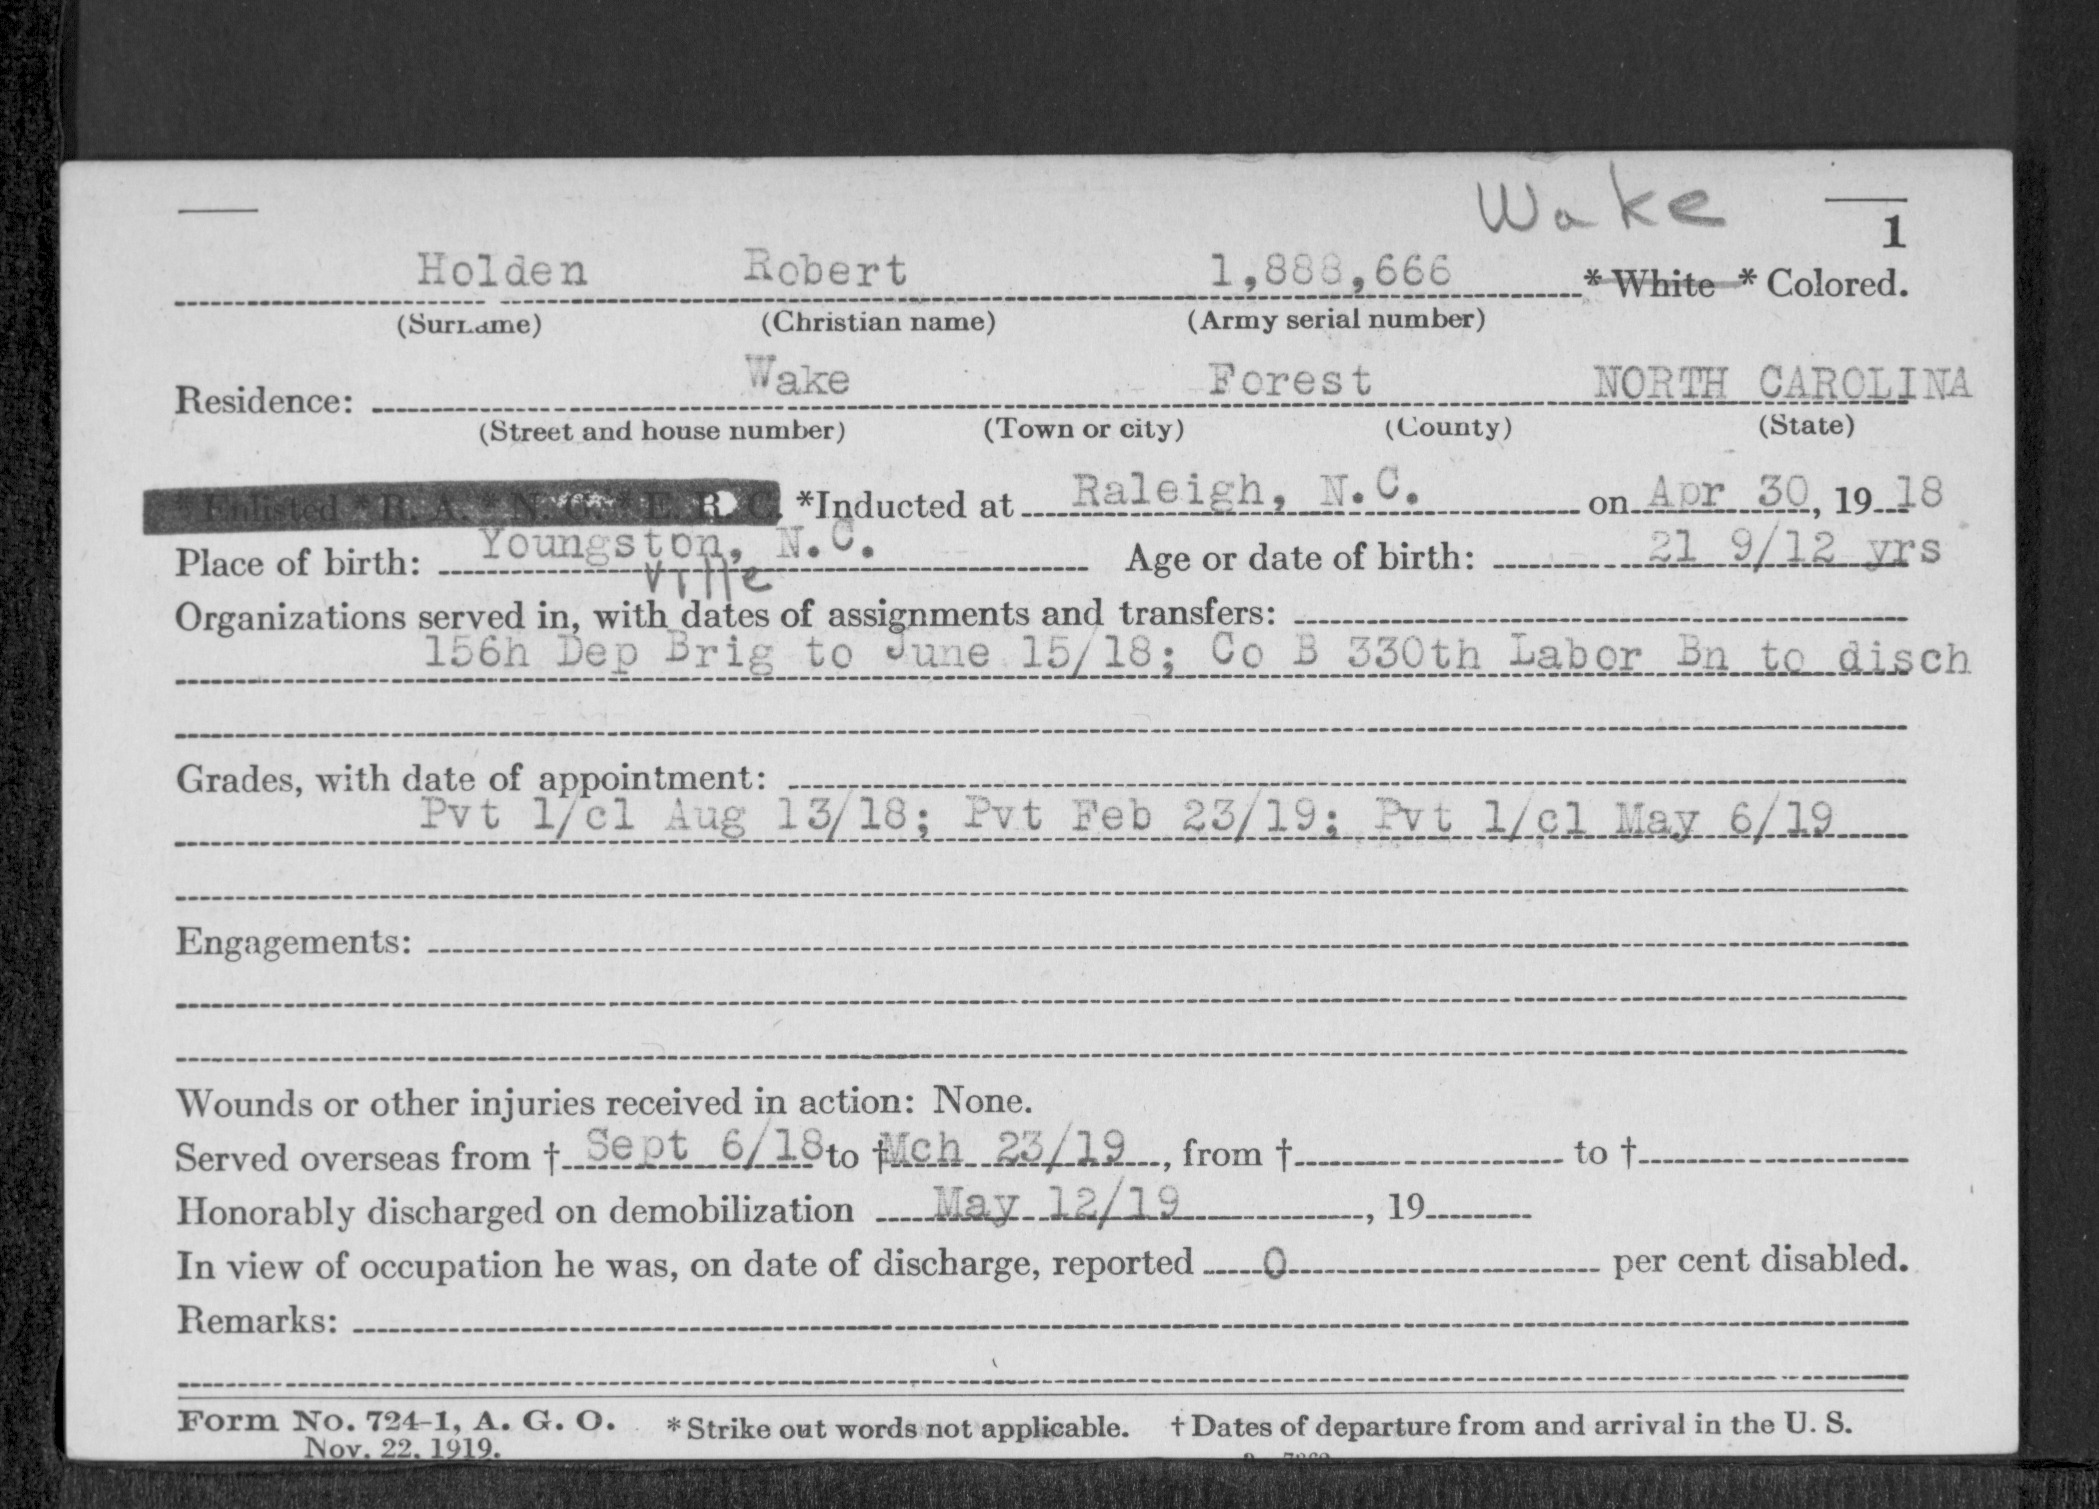 Wake
1
Holden Robert 1,888,666 * White * Colored.
(Surname) (Christian name) (Army serial number)
Wake Forest NORTH CAROLINA
Residence:
(Street and house number) (Town or city) (County) (State)
* Enlisted * R. A. * N. G. * E. R. C. *Inducted at Raleigh, N.C. on Apr 30, 1918
Place of birth: Youngston, N.C. Age or date of birth: 21 9/12 yrs
ville
Organizations served in, with dates of assignments and transfers:
156h Dep Brig to June 15/18; Co B 330th Labor Bn to disch
Grades, with date of appointment:
Pvt 1/cl Aug 13/18; Pvt Feb 23/19; Pvt 1/cl May 6/19
Engagements:
Wounds or other injuries received in action: None.
Served overseas from † Sept 6/18 to † Mch 23/19, from † to †
Honorably discharged on demobilization May 12/19, 19
In view of occupation he was, on date of discharge, reported 0 per cent disabled.
Remarks:
Form No. 724-1, A. G. O. * Strike out words not applicable. † Dates of departure from and arrival in the U. S.
Nov. 22, 1919.